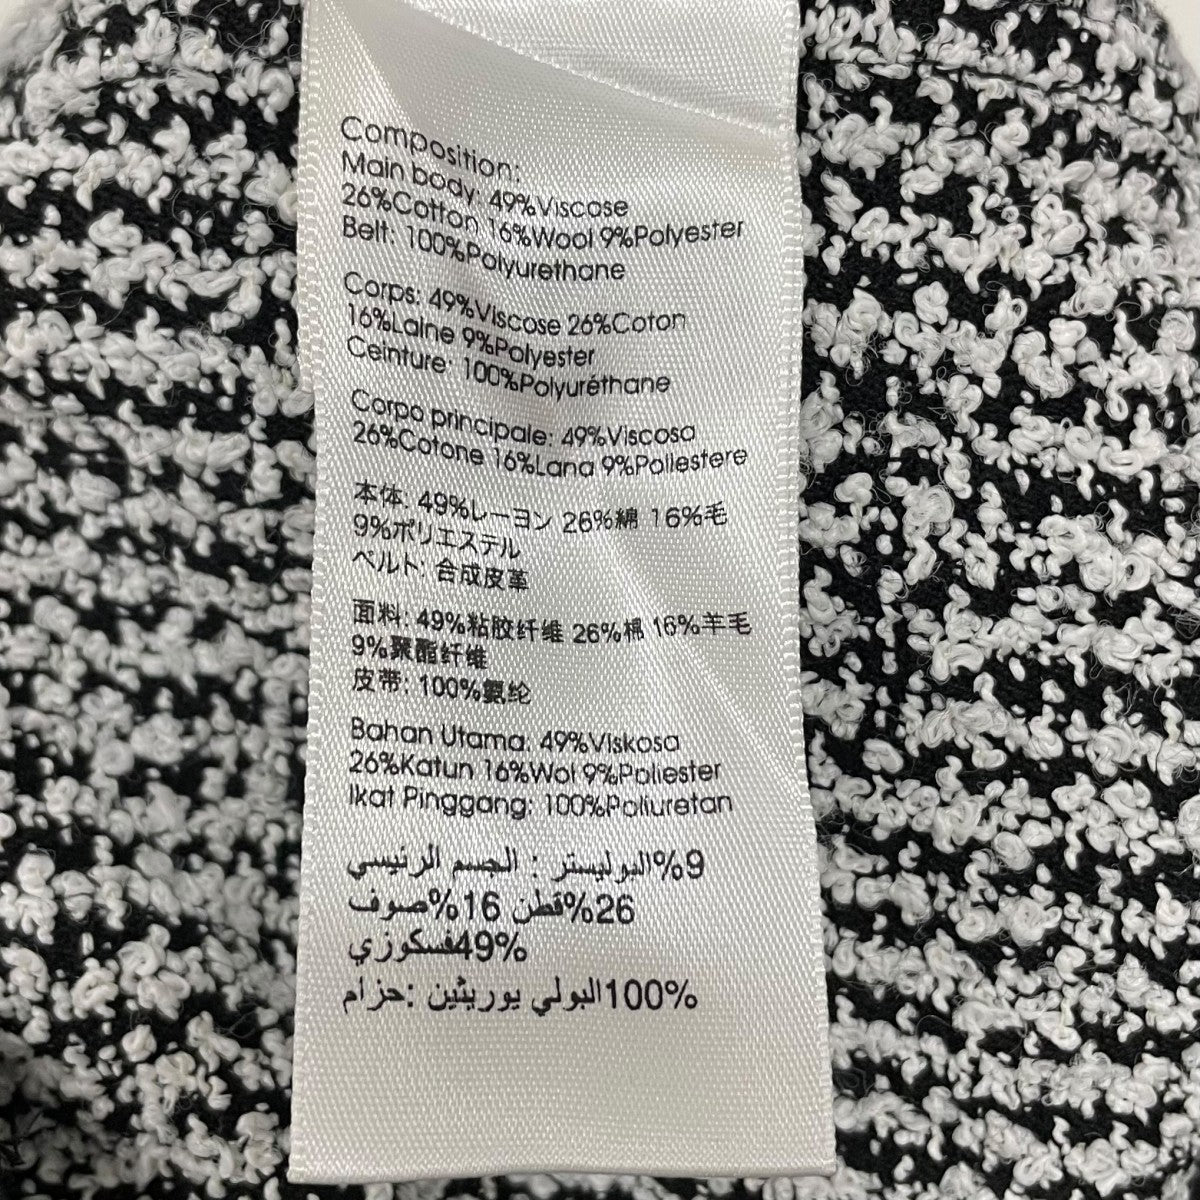 Composition:
Main body: 49%Viscose
26%Cotton 16%Wool 9%Polyester
Belt: 100%Polyurethane
Corps: 49%Viscose 26%Coton
16%Laine 9%Polyester
Ceinture: 100%Polyuréthane
Corpo principale: 49%Viscosa
26%Cotone 16%Lana 9%Poliestere
本体: 49%レーヨン 26%綿 16%毛
9%ポリエステル
ベルト: 合成皮革
面料: 49%粘胶纤维 26%棉 16%羊毛
9%聚酯纤维
皮带: 100%氨纶
Bahan Utama: 49%Viskosa
26%Katun 16%Wol 9%Poliester
Ikat Pinggang: 100%Poliuretan
الجسم الرئيسي : البوليستر%9
26%قطن 16%صوف
49%فسكوزي
حزام: البولي يوريثين100%